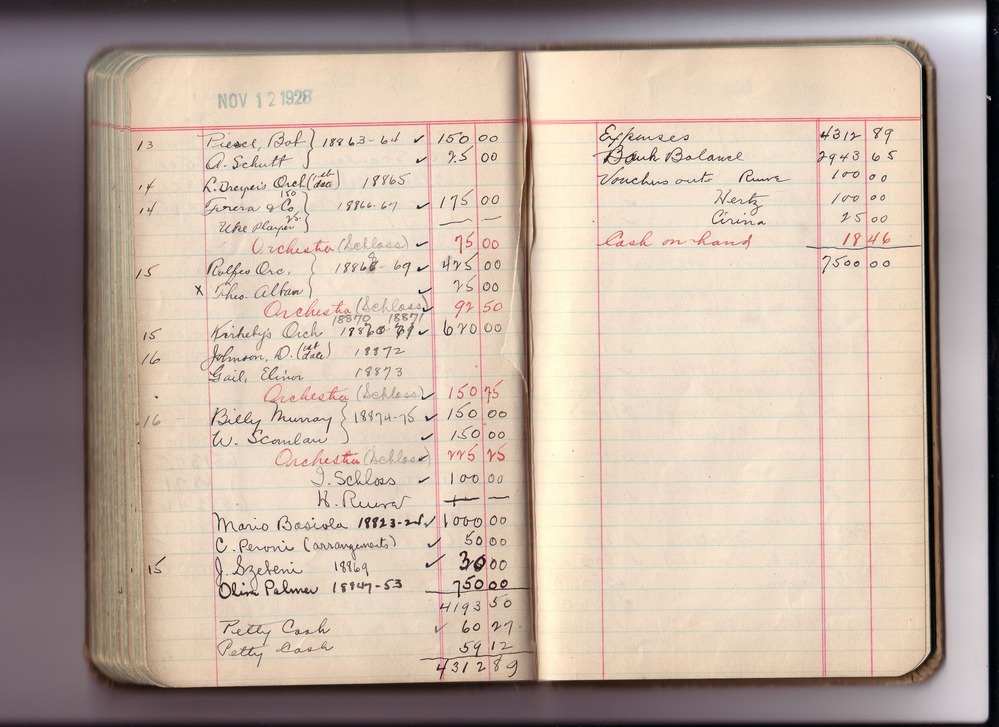 NOV 12 1928
13 Piesce, Bob } 18863-64 ✓ 150 00
A. Schutt } ✓ 25 00
14 L. Dreyer's Orch (1st date) 18865
14 Frera & Co 150 } 18866-67 ✓ 175 00
Uke Player 25.- } — —
Orchestra (Schloss) ✓ 75 00
15 Rolfes Orc. } 18868-69 ✓ 425 00
x Theo. Alban } ✓ 25 00
Orchestra (Schloss) ✓ 92 50
18870 18871
15 Kirkeby's Orch ✓ 620 00
16 Johnson, D. (1st date) 18872
Gail, Elinor 18873
Orchestra (Schloss) ✓ 150 75
16 Billy Murray } 18874-75 ✓ 150 00
W. Scanlan } ✓ 150 00
Orchestra (Schloss) 225 25
I. Schloss ✓ 100 00
H. — —
Mario Basiola 18823-24 ✓ 1000 00
C. Peroni (arrangements) ✓ 50 00
15 J. Szebeni 18869 ✓ 30 00
Olive Palmer 18847-53 750 00
4193 50
Petty Cash ✓ 60 27
Petty Cash 59 12
4312 89
Expenses 4312 89
Bank Balance 2943 65
Vouchers out 100 00
Hertz 100 00
Cirina 25 00
Cash on hand 18 46
7500 00